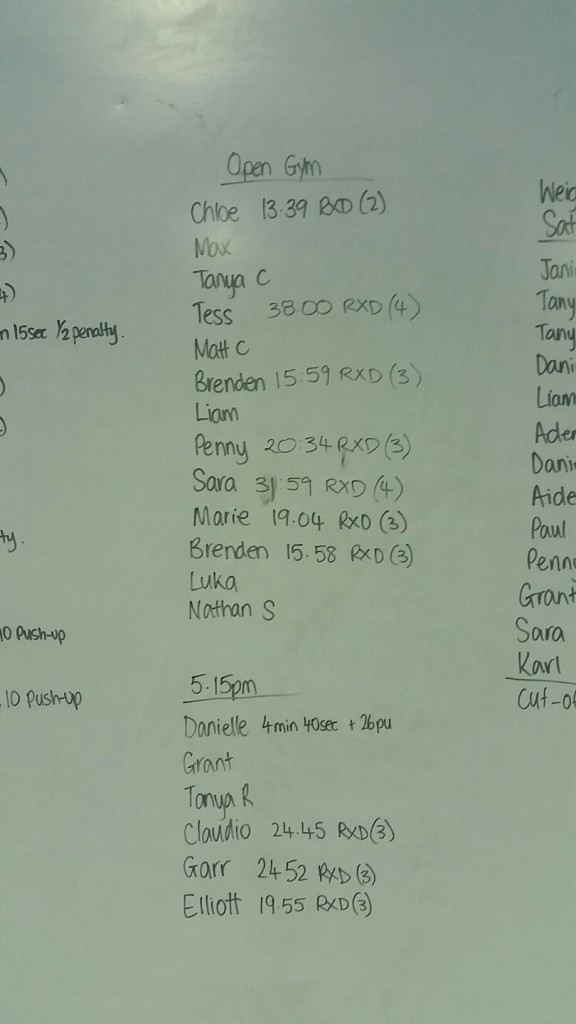 )
)
3)
4)
n 15sec 1/2 penalty.
)
)
ty.
10 Push-up
, 10 Push-up
Open Gym
Chloe 13.39 RXD (2)
Max
Tanya C
Tess 38:00 RXD (4)
Matt C
Brenden 15:59 RXD (3)
Liam
Penny 20:34 RXD (3)
Sara 31:59 RXD (4)
Marie 19.04 RXD (3)
Brenden 15.58 RXD (3)
Luka
Nathan S
5.15pm
Danielle 4min 40sec + 26pu
Grant
Tanya R
Claudio 24.45 RXD (3)
Garr 24 52 RXD (3)
Elliott 19.55 RXD (3)
Weig
Sat
Jani
Tany
Tany
Dani
Liam
Aden
Dani
Aide
Paul
Penn
Grant
Sara
Karl
Cut-of